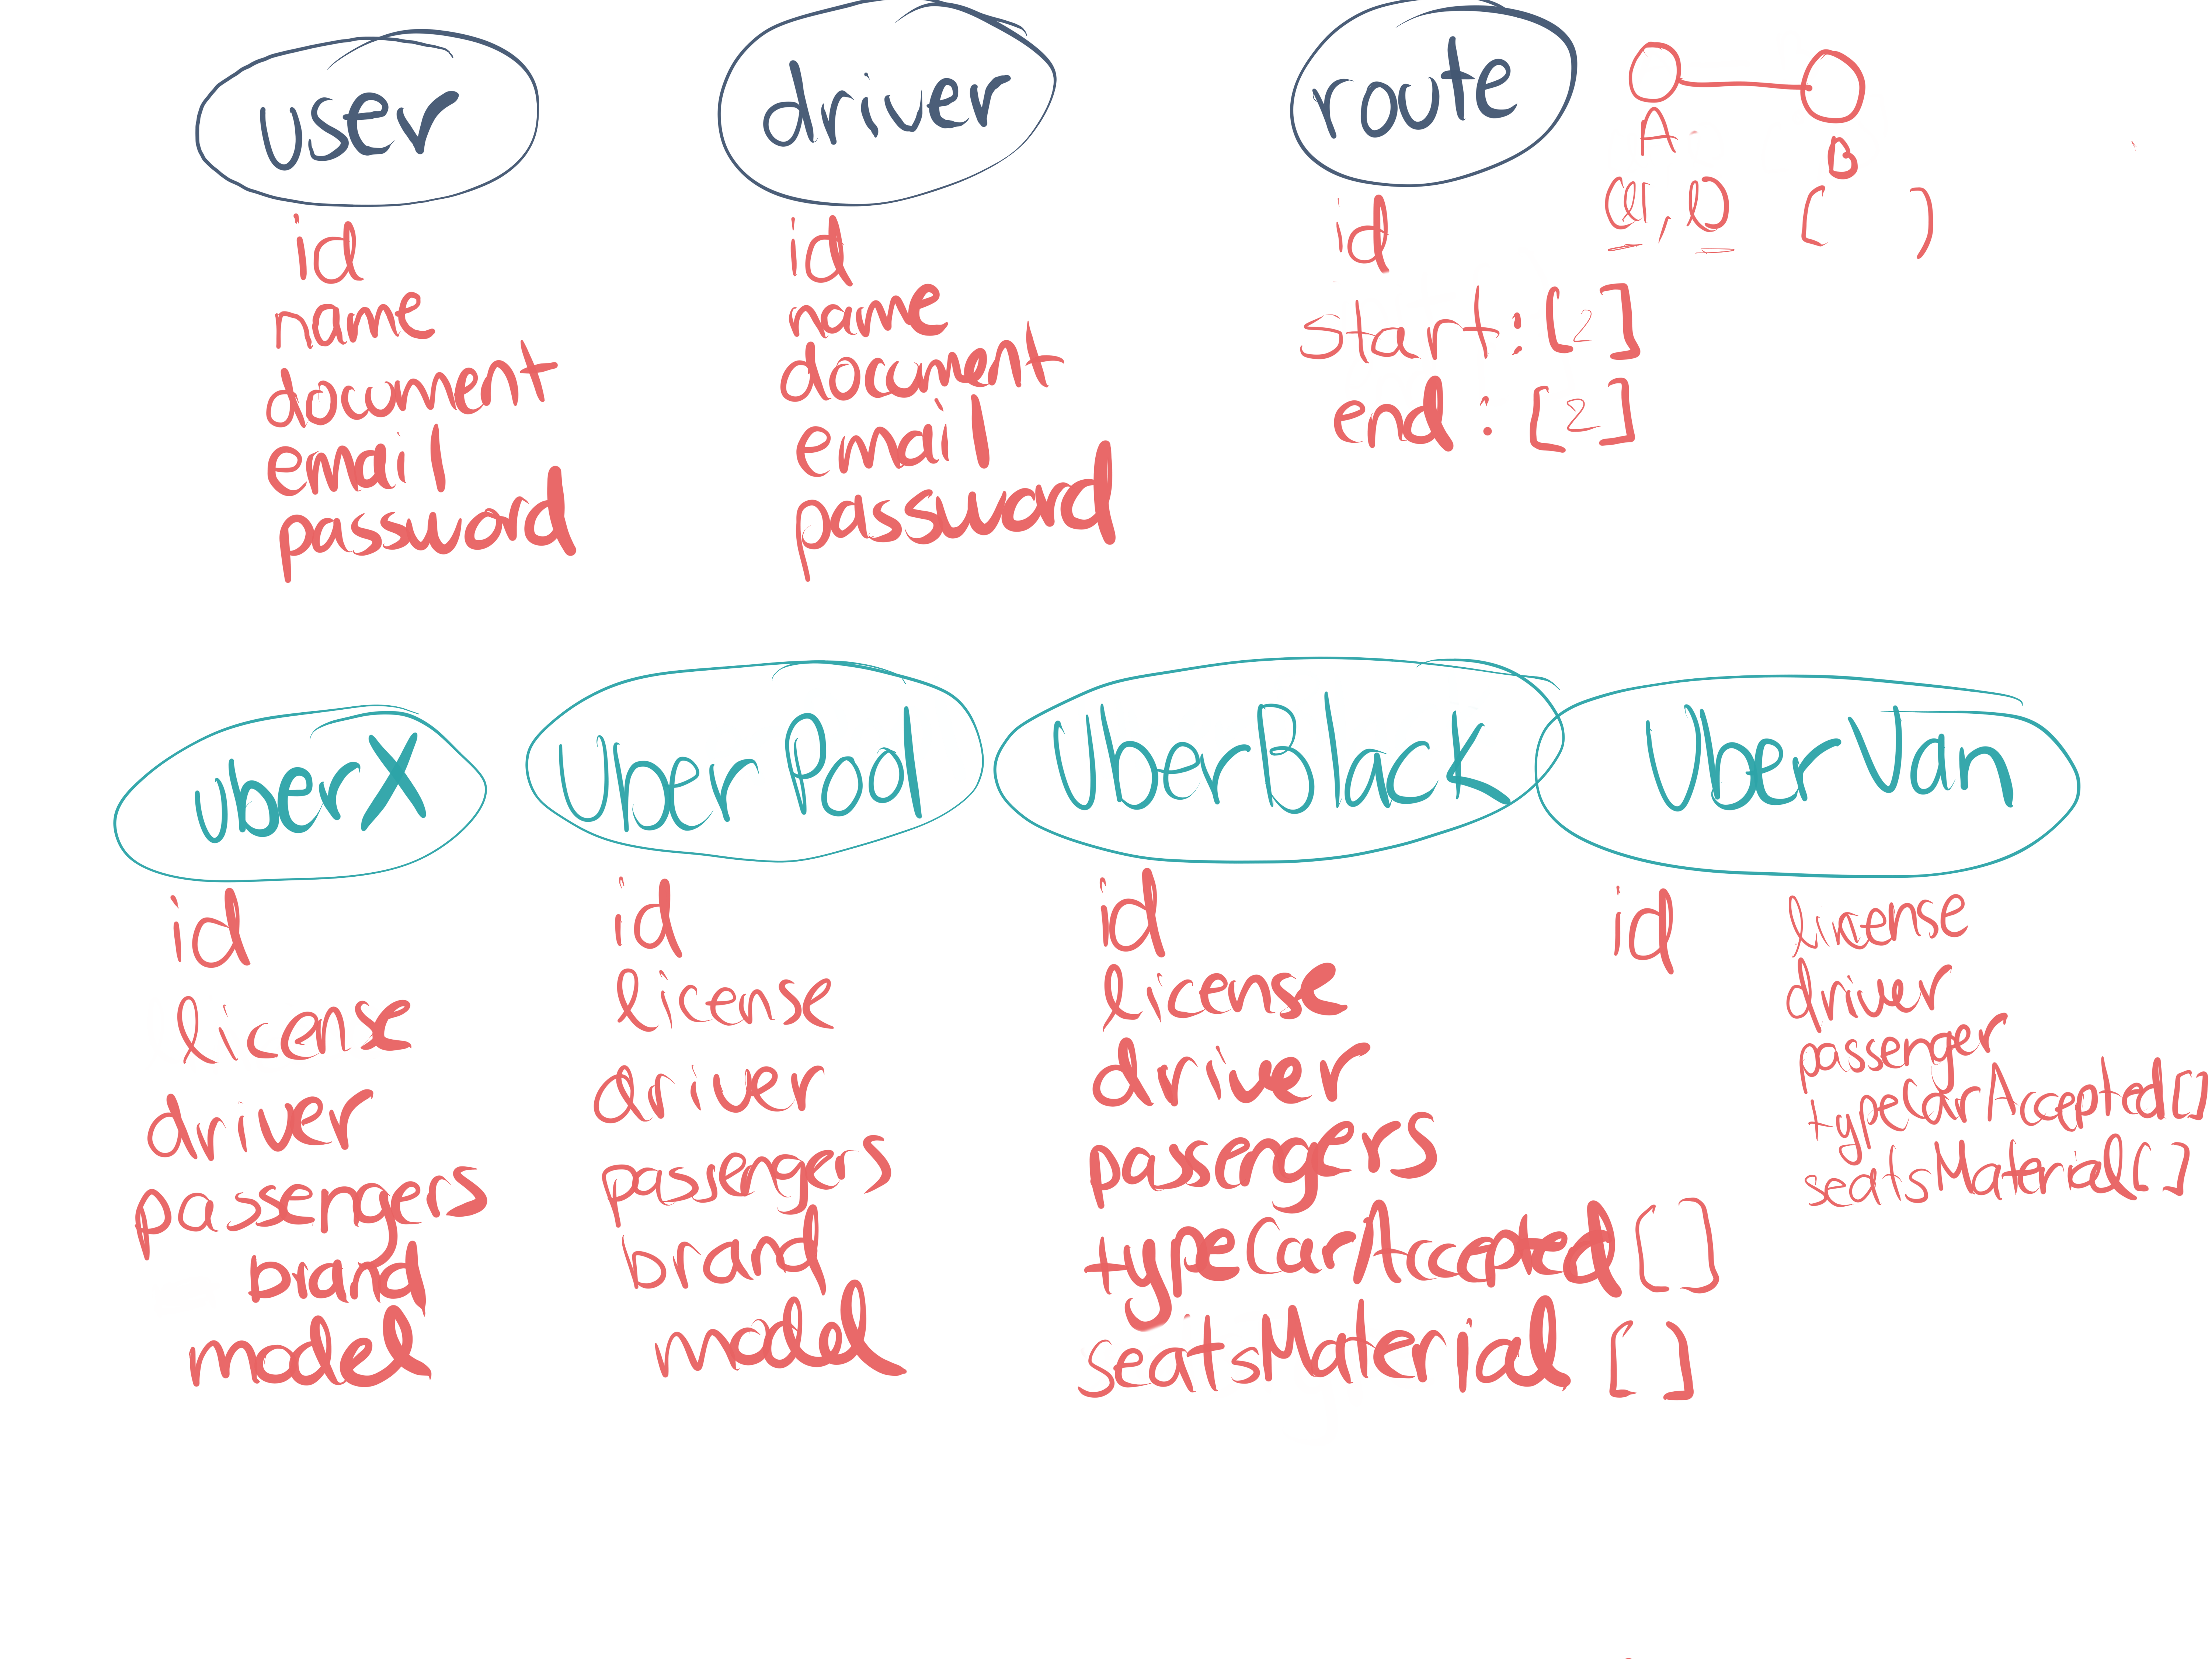 user
id
name
document
email
password
driver
id
name
document
email
password
route
id
start : [2]
end : [2]
A
B
UberX
id
license
driver
passengers
brand
model
UberPool
id
license
driver
passengers
brand
model
UberBlack
id
license
driver
passengers
typeCarAccepted []
seatsMaterial []
UberVan
id
license
driver
passenger
typeCarAccepted []
seatsMaterial []